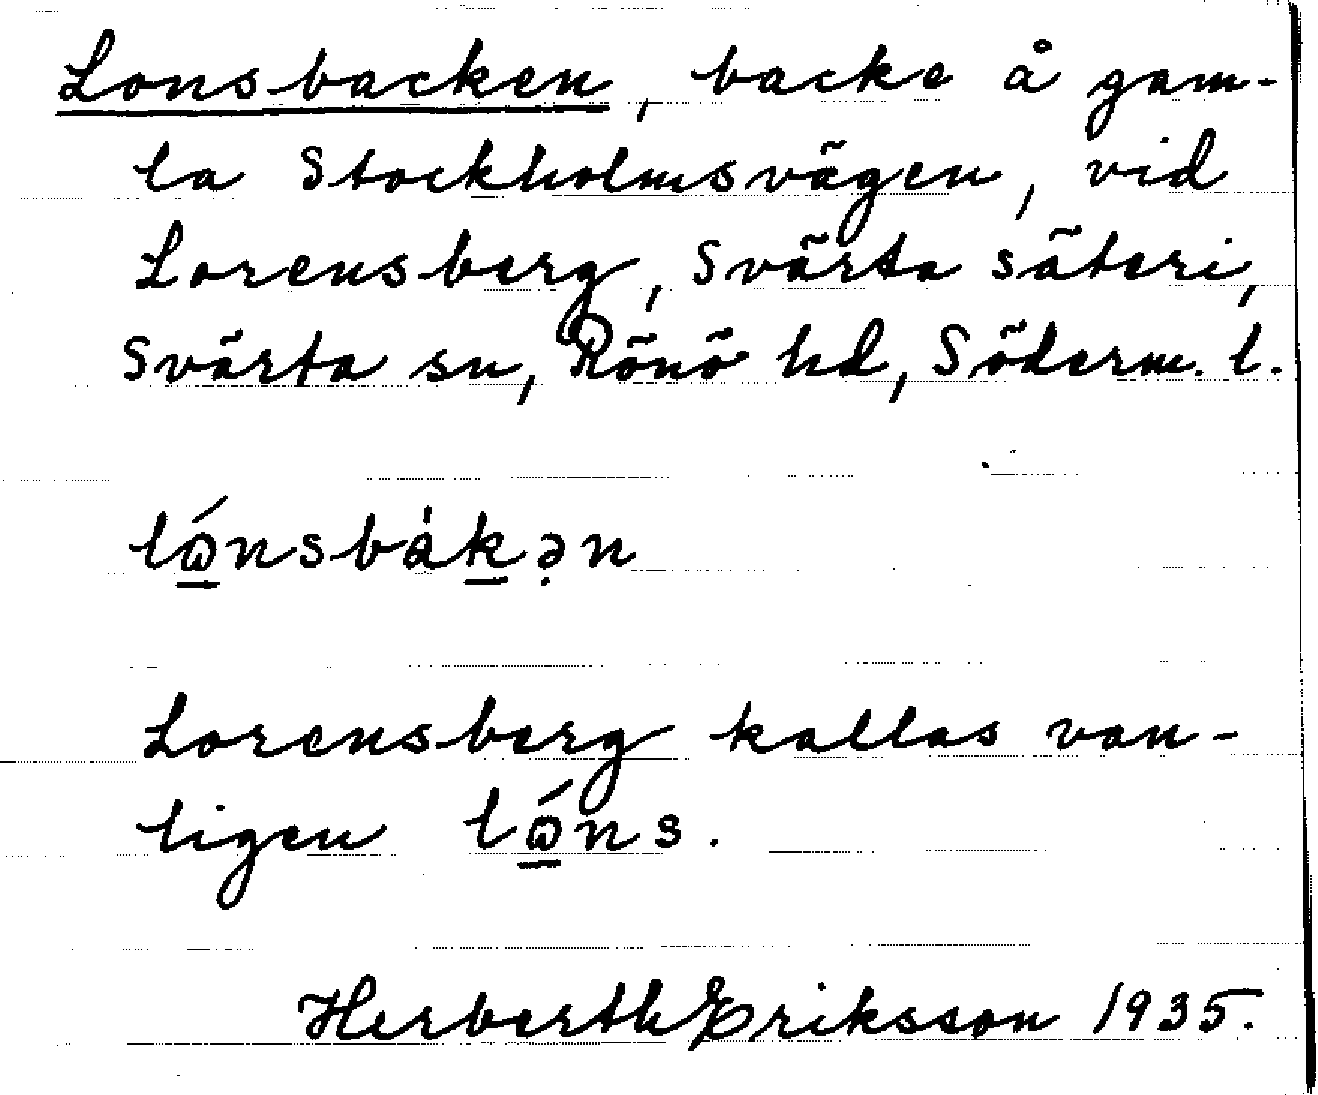 Lonsbacken, backe å gam-
la Stockholmsvägen, vid
Lorensberg, Svärta säteri,
Svärta sn, Rönö hd, Söderm. l.
lɷ̲́nsbȧk̲ə̣n
Lorensberg kallas van-
ligen lɷ̲́ns.
Herberth Eriksson 1935.